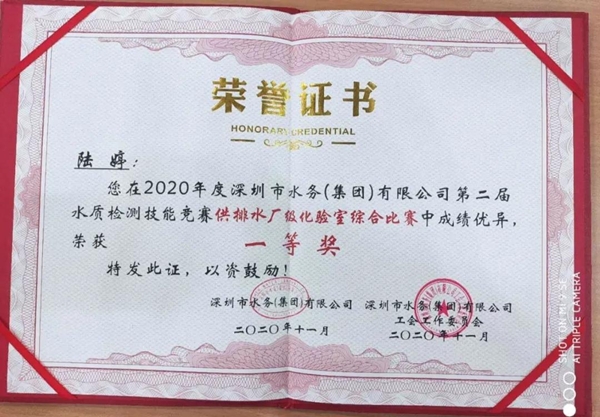 荣誉证书
HONORARY CREDENTIAL
陆婷：
您在2020年度深圳市水务(集团)有限公司第二届
水质检测技能竞赛供排水厂级化验室综合比赛中成绩优异，
荣获
一等奖
特发此证，以资鼓励！
深圳市水务(集团)有限公司
二〇二〇年十一月
深圳市水务(集团)有限公司
工会工作委员会
二〇二〇年十一月
SHOT ON MI 9 SE
AI TRIPLE CAMERA